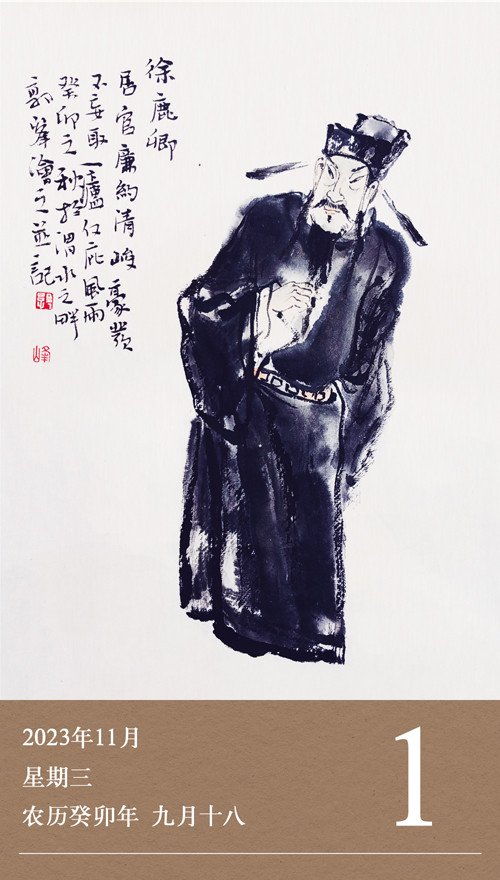 徐鹿卿
居官廉約清峻豪發
不妄取一廬仅庇風雨
癸卯之秋於渭水之畔
郭峯繪之並記
峰
2023年11月
星期三
农历癸卯年 九月十八
1